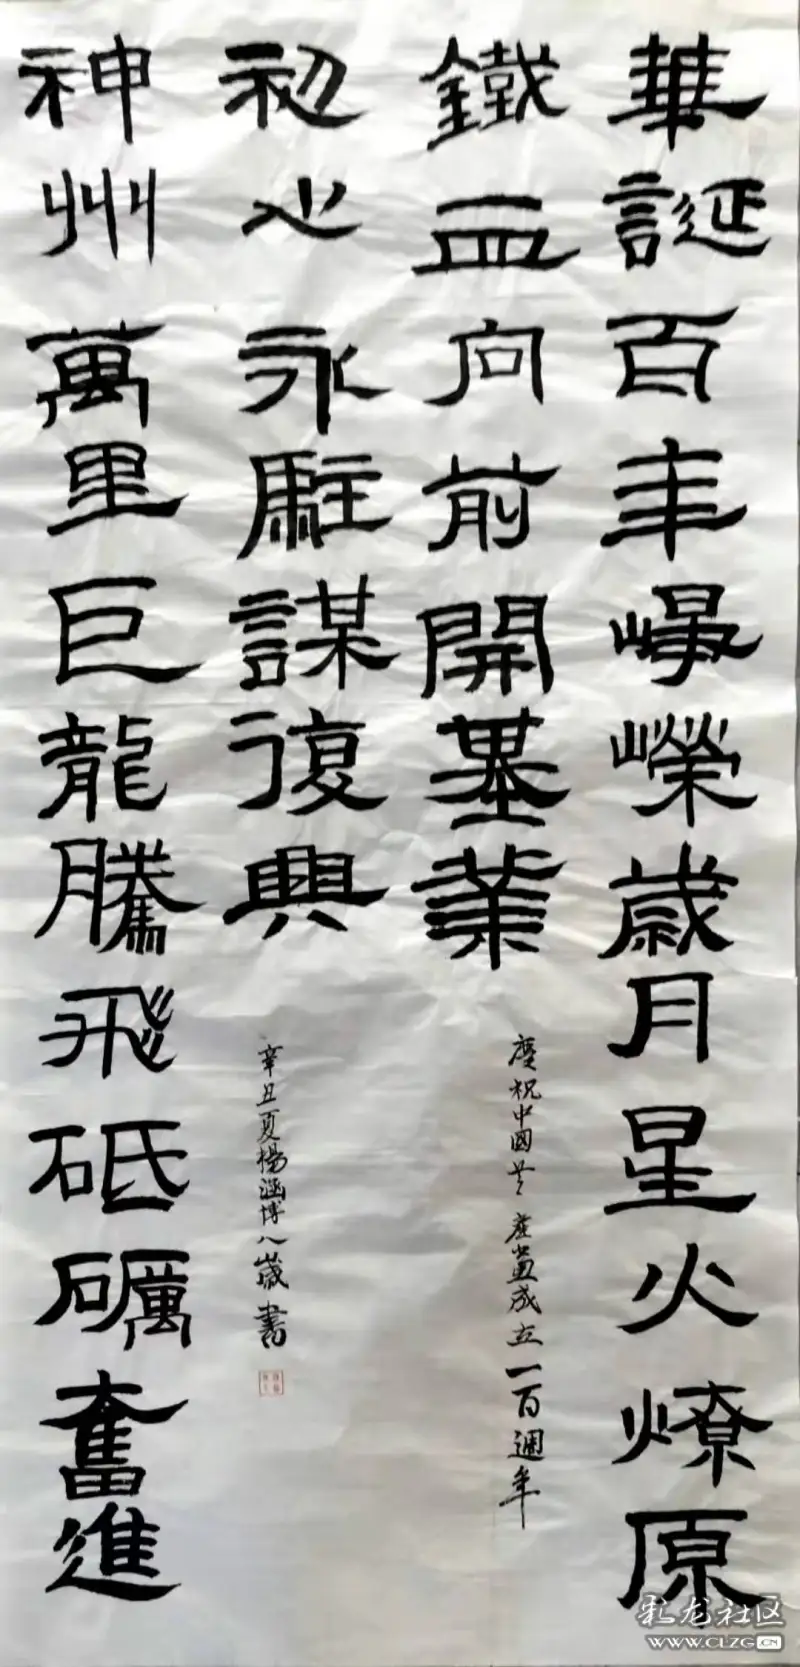 華誕百年崢嶸歲月星火燎原
鐵血向前開基業
慶祝中國共產黨成立一百週年
神州萬里巨龍騰飛砥礪奮進
初心永駐謀復興
辛丑夏楊涵博八歲書
彩龙社区
www.CLZG.CN